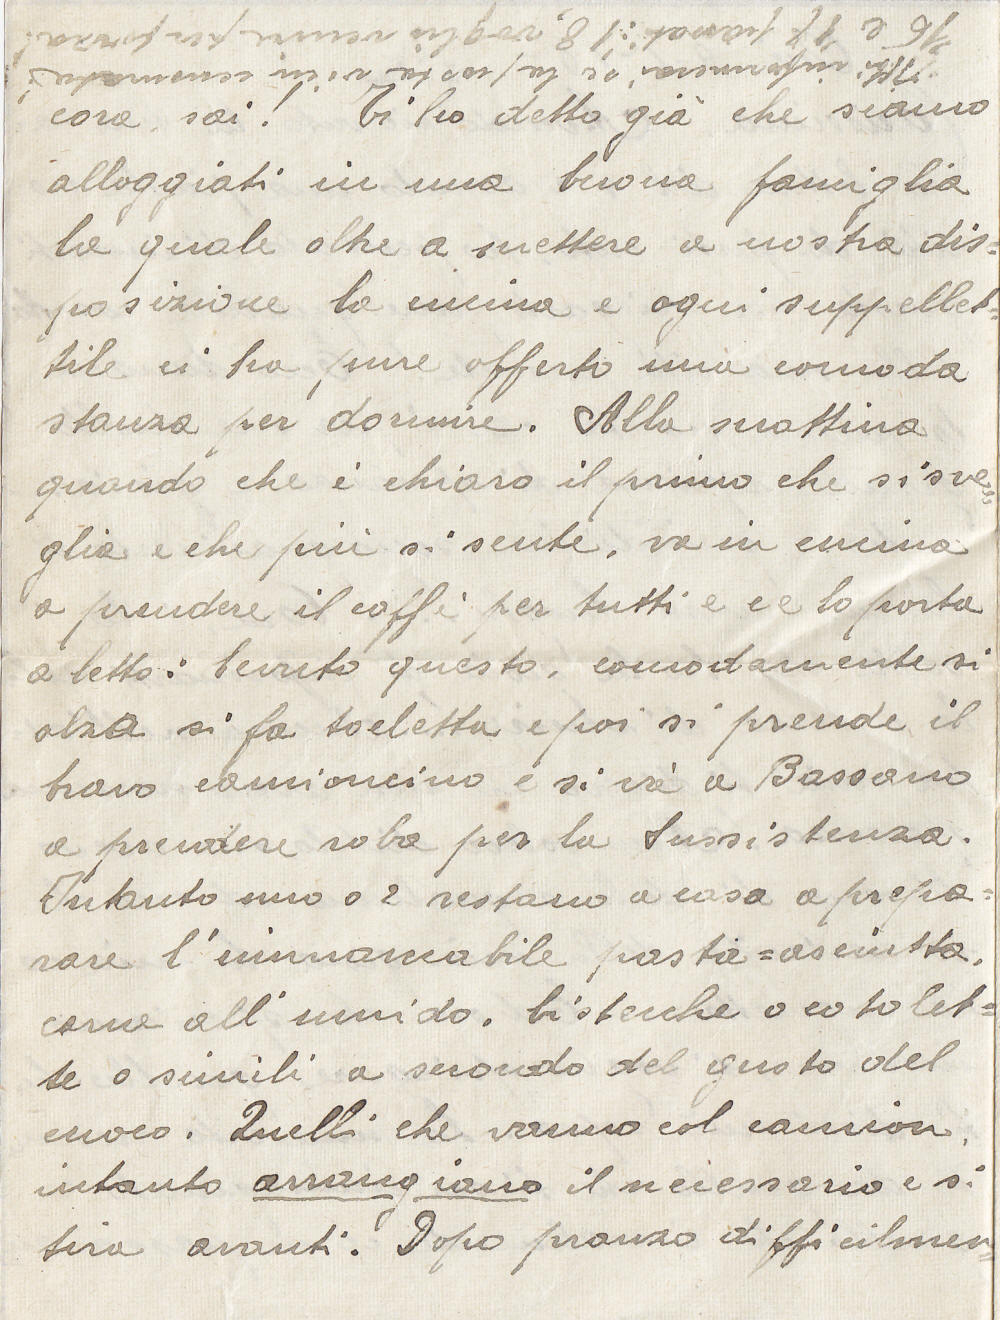 cora, sai! Ti ho detto già che siamo
alloggiati in una buona famiglia
la quale oltre a mettere a nostra dis=
posizione la cucina e ogni suppellet=
tile ci ha pure offerto una comoda
stanza per dormire. Alla mattina
quando che è chiaro il primo che si sve=
glia e che più si sente, va in cucina
a prendere il caffè per tutti e ce lo porta
a letto: bevuto questo, comodamente si
alza si fa toeletta e poi si prende il
bravo camioncino e si và a Bassano
a prendere roba per la Sussistenza.
Intanto uno o 2 restano a casa a prepa=
rare l'immancabile pasta=asciutta,
carne all'umido, bistecche o cotolet=
te o simili a secondo del gusto del
cuoco. Quelli che vanno col camion,
intanto arrangiano il necessario e si
tira avanti. Dopo pranzo difficilmen=
Mi informerai se la posta vi in
36 e 37 passati: 38, voglio venire per forza!